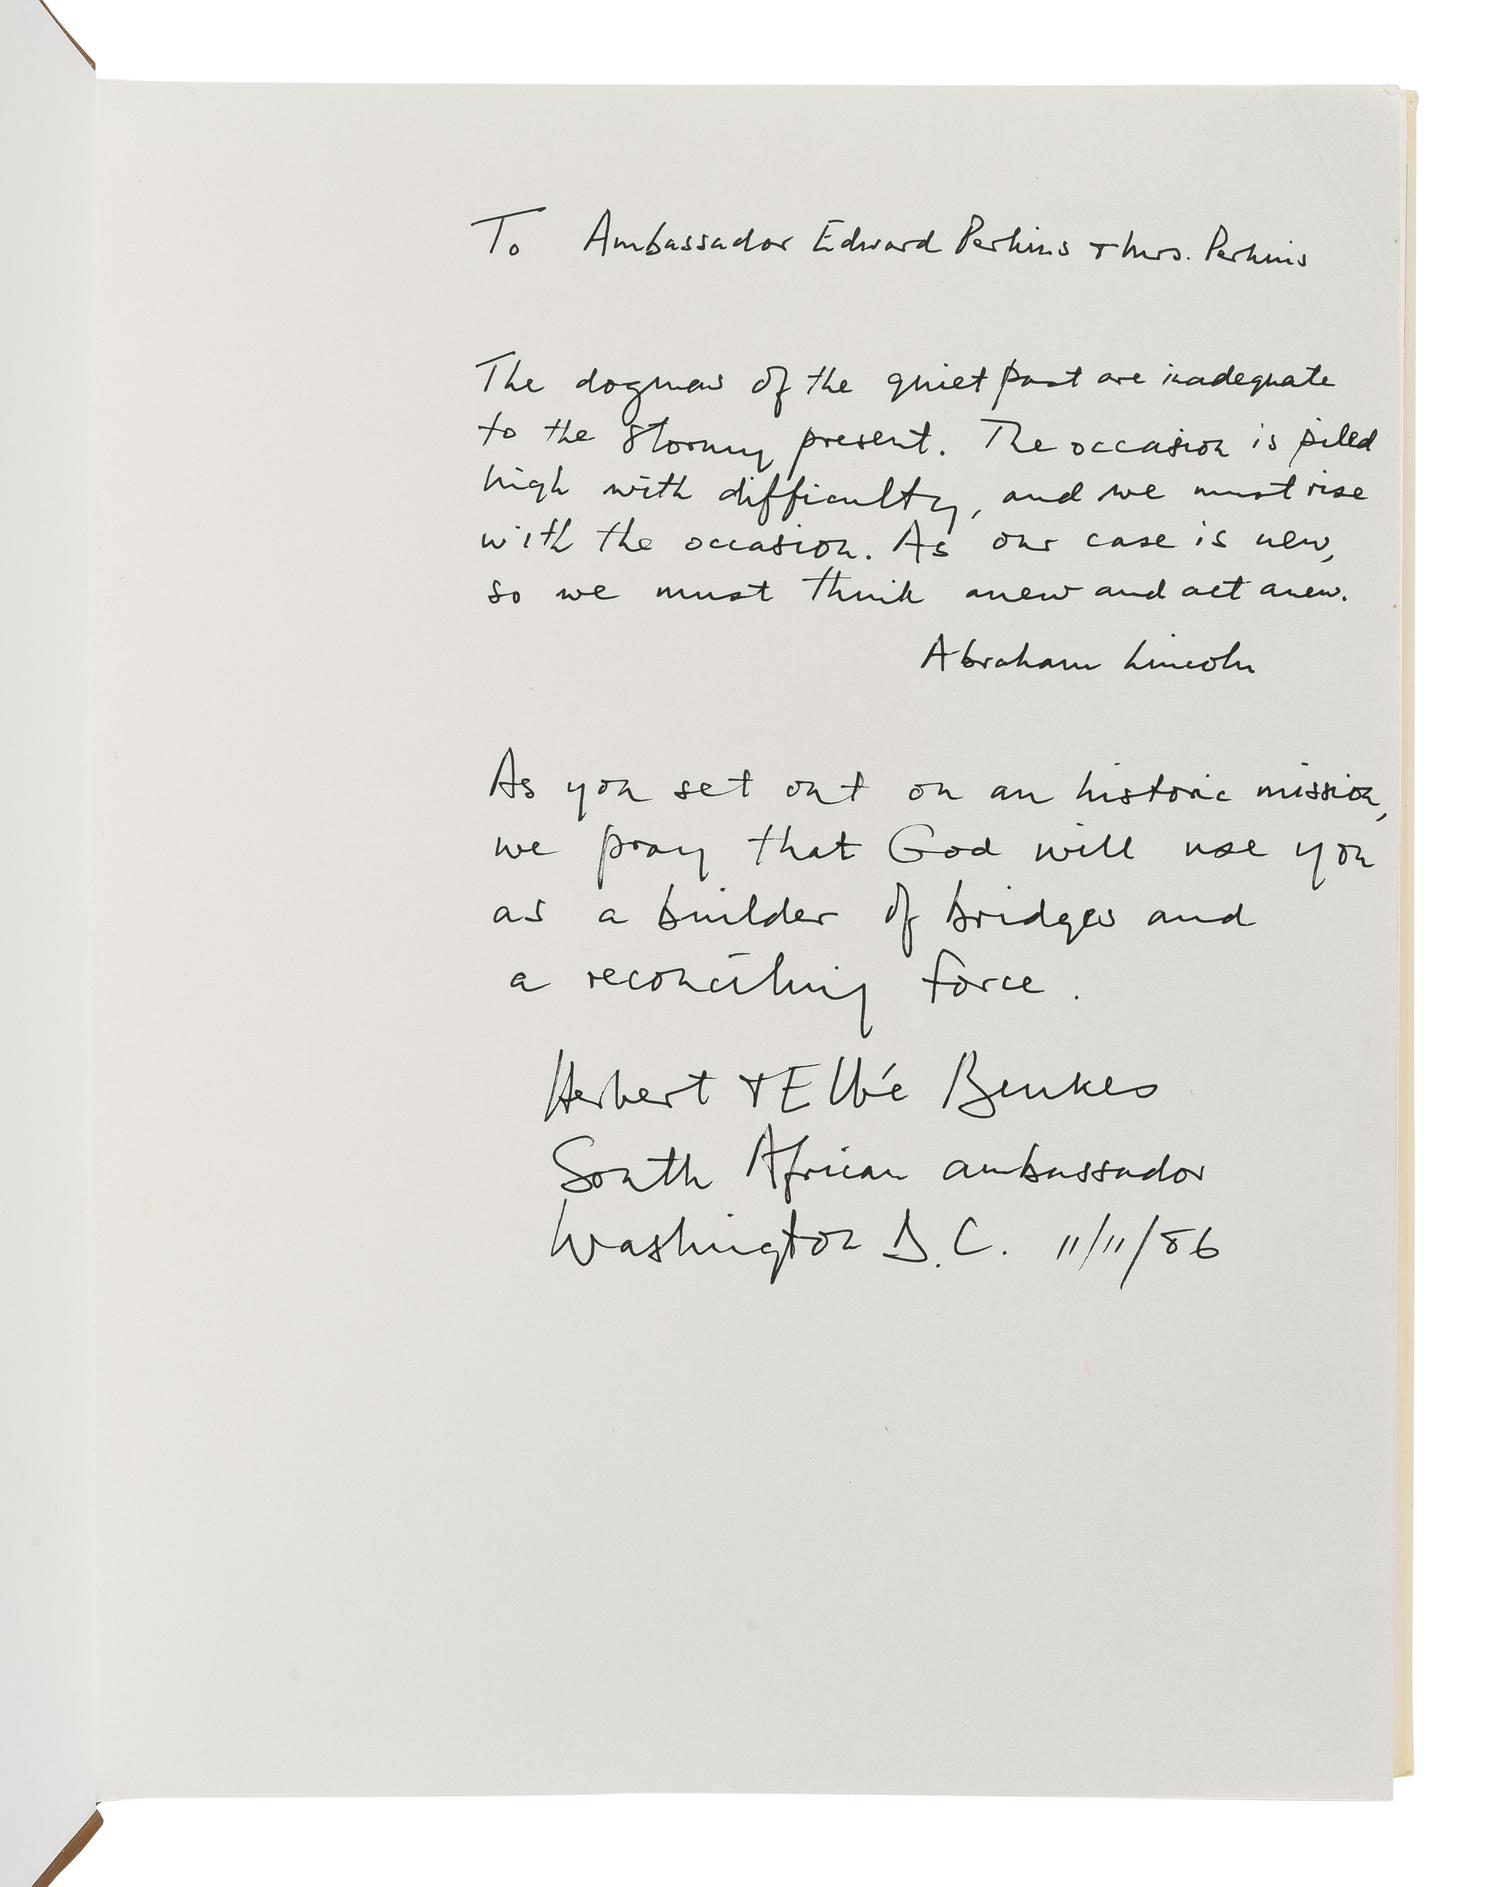 To Ambassador Edward Perkins & Mrs. Perkins
The dogmas of the quiet past are inadequate
to the stormy present. The occasion is piled
high with difficulty, and we must rise
with the occasion. As our case is new,
so we must think anew and act anew.
Abraham Lincoln
As you set out on an historic mission,
we pray that God will use you
as a builder of bridges and
a reconciling force.
Herbert & Elbé Beukes
South African ambassador
Washington D.C. 11/11/86